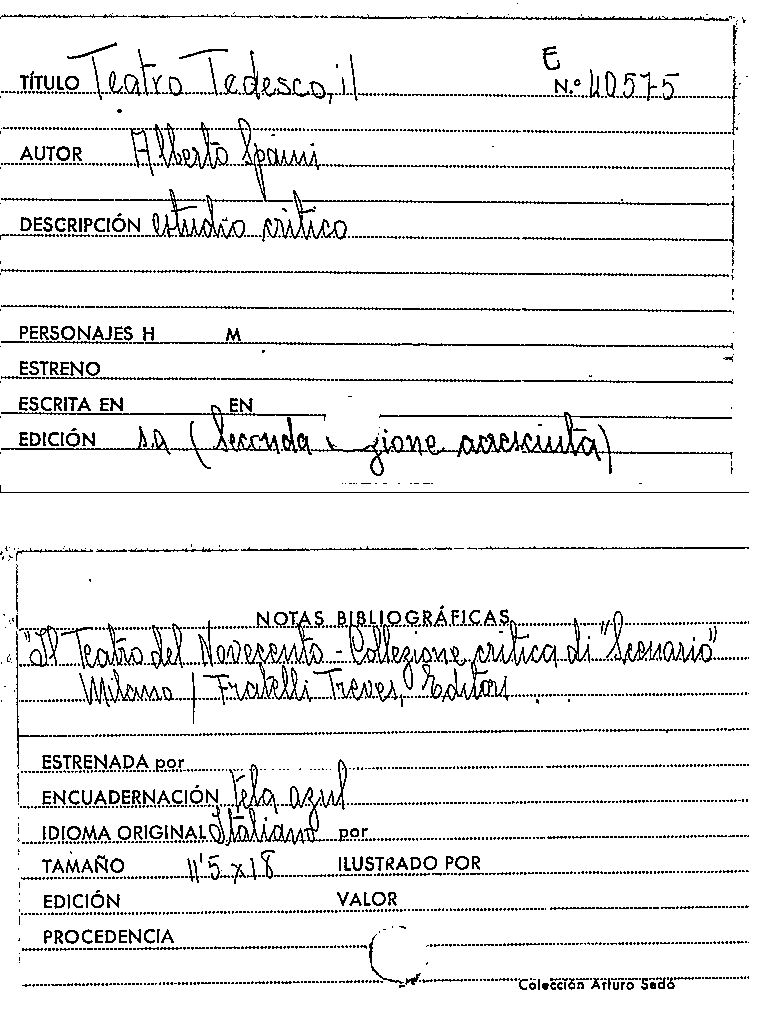 TÍTULO Teatro Tedesco, il E N.º 40575
AUTOR Alberto Spaini
DESCRIPCIÓN estudio critico
PERSONAJES H M
ESTRENO
ESCRITA EN EN
EDICIÓN s.a (Seconda zione accresciuta)
NOTAS BIBLIOGRÁFICAS
"Il Teatro del Novecento - Collezione critica di "Scenario"
Milano | Fratelli Treves, Editori
ESTRENADA por
ENCUADERNACIÓN tela azul
IDIOMA ORIGINAL Italiano por
TAMAÑO 11'5 x 18 ILUSTRADO POR
EDICIÓN VALOR
PROCEDENCIA
Colección Arturo Sedó